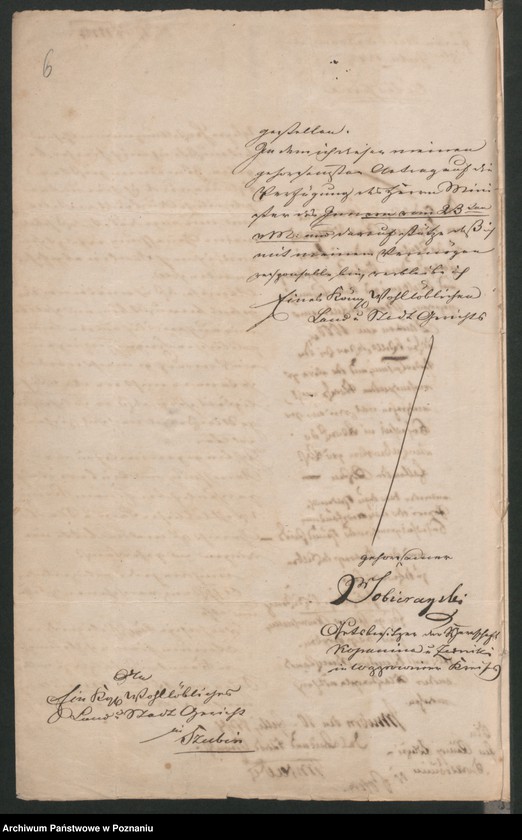 6
gestellen.
Indem ich dieser meinen
gehorsamsten Antrag auf die
Verfügung des Herrn Mini
ster des Innern vom 23ten
v. M. darauf stütze, daß ich
mit meinem Vermögen
responsable bin, verbleibe ich
Eines Königl. Wohllöblichen
Land u Stadt Gerichts
gehorsamer
Dobierayski
Gutsbesitzer der Herrschaft
Kopanina u Zerniki
in Wągrowiecer Kreises
An
Ein Kgl. Wohllöbliches
Land u Stadt Gericht
in
Szubin
Archiwum Państwowe w Poznaniu